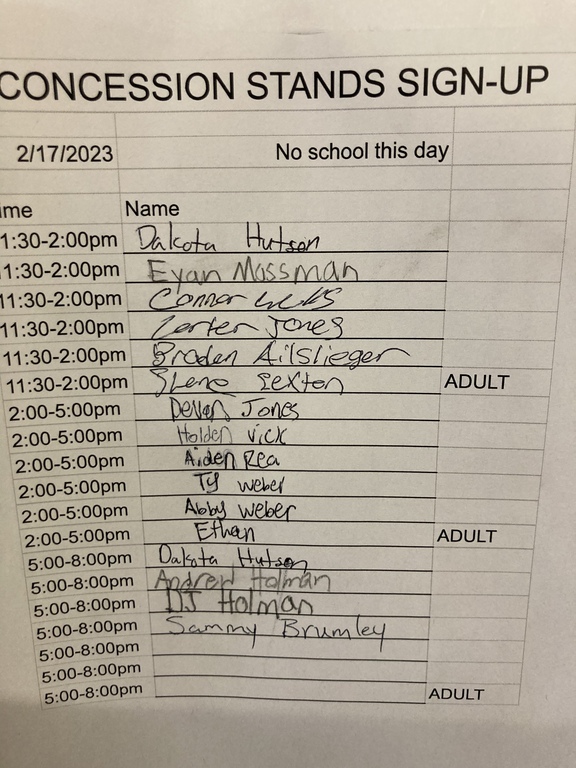 CONCESSION STANDS SIGN-UP
2/17/2023 No school this day
ime Name
1:30-2:00pm Dakota Hutson
1:30-2:00pm Evan Mossman
11:30-2:00pm Connor
11:30-2:00pm Carter Jones
11:30-2:00pm Braden Ailslieger
11:30-2:00pm Sexton ADULT
2:00-5:00pm Deven Jones
2:00-5:00pm Holden Vick
2:00-5:00pm Aiden Rea
2:00-5:00pm Ty Weber
2:00-5:00pm Abby Weber
2:00-5:00pm Ethan ADULT
5:00-8:00pm Dakota Hutson
5:00-8:00pm Andrew Holman
5:00-8:00pm DJ Holman
5:00-8:00pm Sammy Brumley
5:00-8:00pm
5:00-8:00pm
5:00-8:00pm ADULT